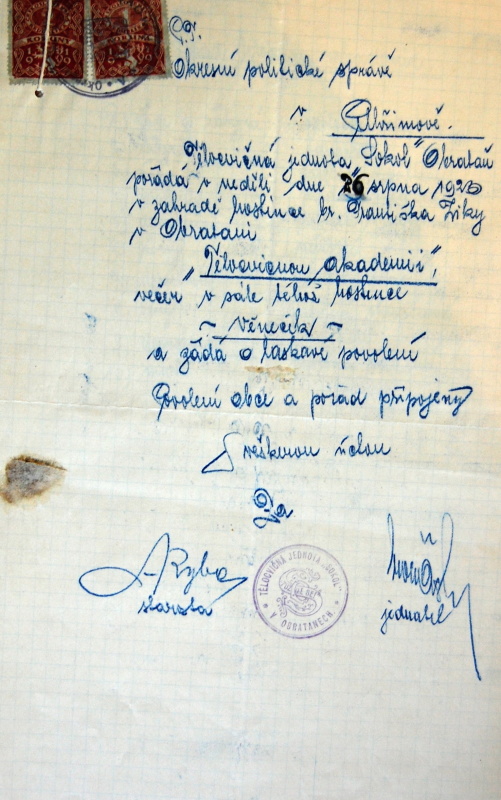 P.T.
Okresní politické správě
v Pelhřimově.
Tělocvičná jednota "Sokol" Obrataň
pořádá v neděli dne 26 srpna 1923
v zahradě hostince br. Františka Ziky
v Obratani
"Tělocvičnou akademii",
večer v sále téhož hostince
- Věneček -
a žádá o laskavé povolení
Povolení obce a pořad připojeny
S veškerou úctou
Za
ARyba
starosta
jednatel
TĚLOCVIČNÁ JEDNOTA "SOKOL"
V OBRATANECH.